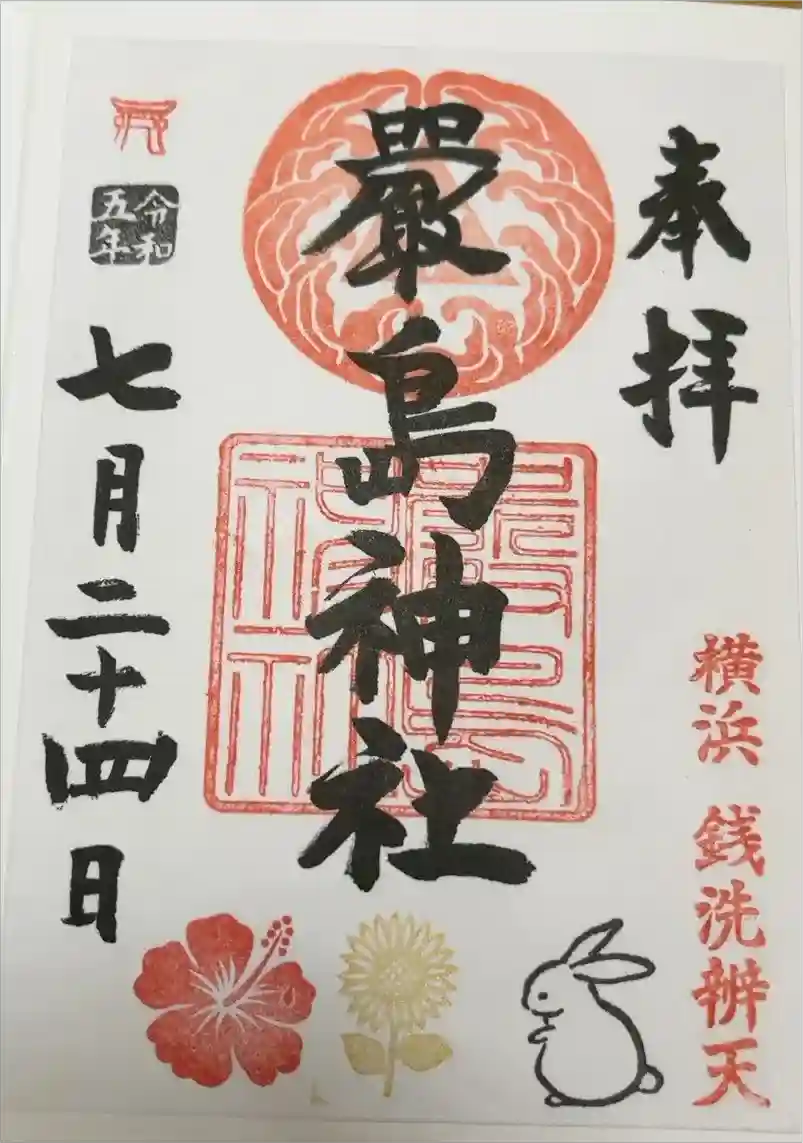 奉拝
横浜 銭洗辨天
嚴島神社
令和
五年
七月二十四日